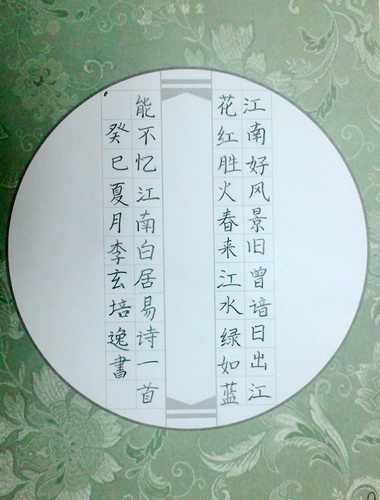 品翰堂
江南好风景旧曾谙日出江
花红胜火春来江水绿如蓝
能不忆江南白居易诗一首
癸巳夏月李玄培逸書